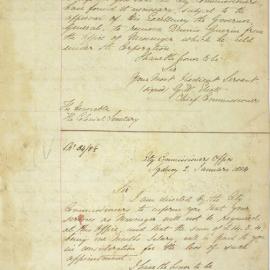 have found it necessary, subject to the
approval of His Excellency the Governor
General, to remove Dennis Guerin from
the Office of Messenger which he held
under the Corporation
I have the honor to be
Sir
Your most Obedient Servant
signed G. Elliott
Chief Commissioner
The Honorable
The Colonial Secretary
City Commissioners Office
Sydney 2 January 1854
Sir
I am directed by the City
Commissioners to inform you that your
services as Messenger will not be required
at this Office, and that the sum of
being one months Salary will be paid to you
in consideration for the loss of such
appointment.
I have the honor to be